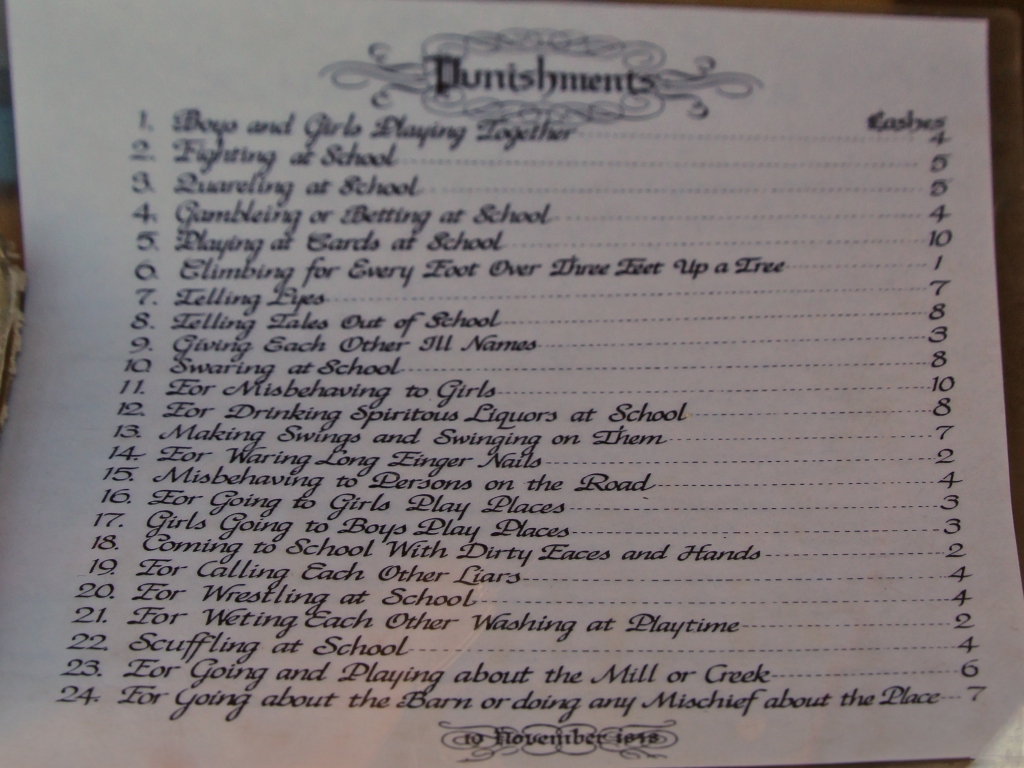 Punishments
Lashes
1. Boys and Girls Playing Together 4
2. Fighting at School 5
3. Quareling at School 5
4. Gambleing or Betting at School 4
5. Playing at Cards at School 10
6. Climbing for Every Foot Over Three Feet Up a Tree 1
7. Telling Lyes 7
8. Telling Tales Out of School 8
9. Giving Each Other Ill Names 3
10. Swaring at School 8
11. For Misbehaving to Girls 10
12. For Drinking Spiritous Liquors at School 8
13. Making Swings and Swinging on Them 7
14. For Waring Long Finger Nails 2
15. Misbehaving to Persons on the Road 4
16. For Going to Girls Play Places 3
17. Girls Going to Boys Play Places 3
18. Coming to School With Dirty Faces and Hands 2
19. For Calling Each Other Liars 4
20. For Wrestling at School 4
21. For Weting Each Other Washing at Playtime 2
22. Scuffling at School 4
23. For Going and Playing about the Mill or Creek 6
24. For Going about the Barn or doing any Mischief about the Place 7
10 November 1848